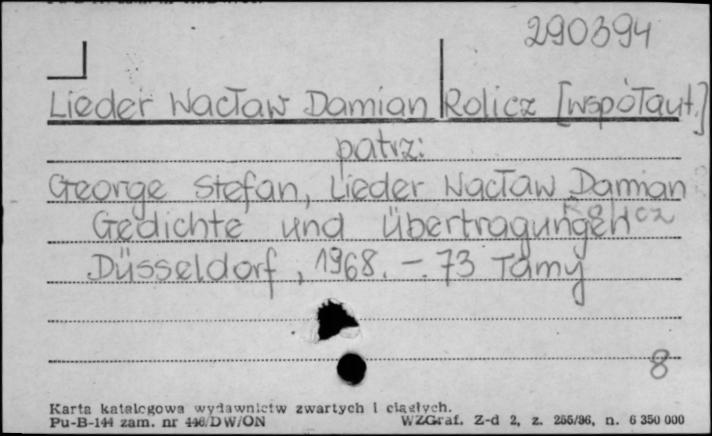 290394
Lieder Wacław Damian Rolicz [współaut.]
patrz:
George Stefan, Lieder Wacław Damian
Rolicz
Gedichte und Übertragungen
Düsseldorf, 1968. – 73 Tamy
8
Karta katalogowa wydawnictw zwartych i ciągłych.
Pu-B-144 zam. nr 446/DW/ON WZGraf. Z-d 2, z. 255/86, n. 6 350 000